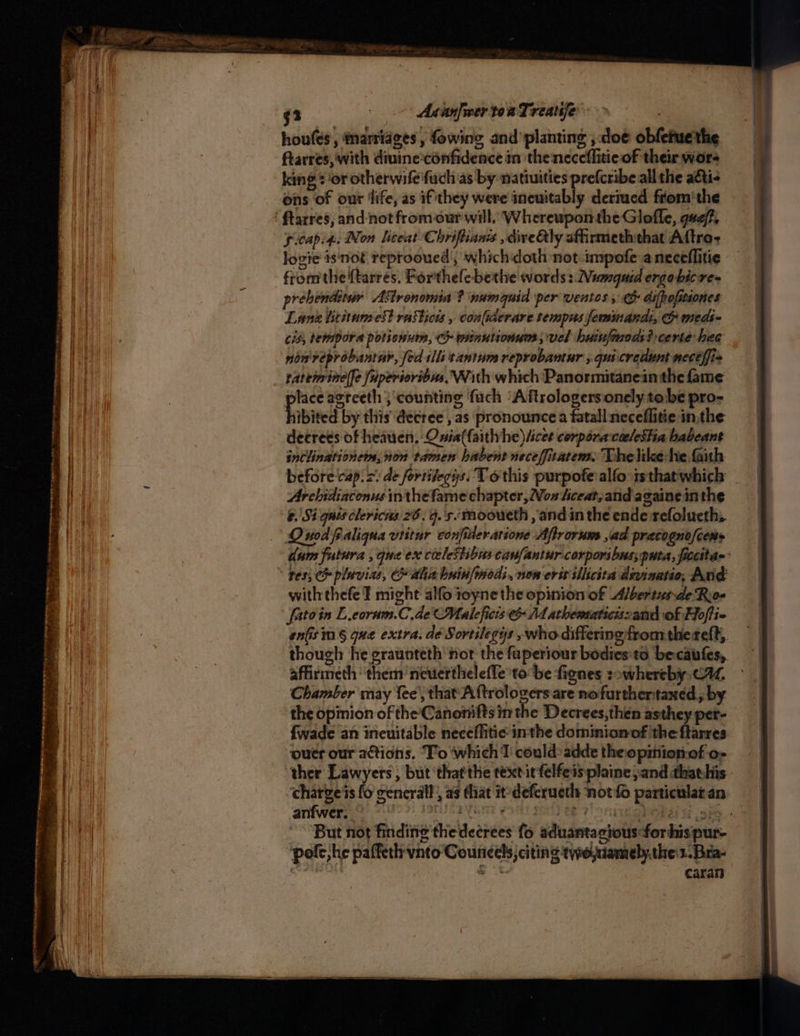 52 An answer to a Treatise
houses, marriages, sowing and planting, doe obserue the
starres, with diuine confidence in the necessitie of their wor-
king: or otherwise such as by natiuities prescribe all the acti-
ons of our life, as if they were ineuitably deriued from the
starres, and not from our will. Whereupon the Glosse, quæst.
5. cap. 4. Non liceat Christianis, directly affirmeth that Astro-
logie is not reprooued, which doth not impose a necessitie
from the starres. For these be the words: Numquid ergo hic re-
prehenditur Astronomia? numquid per ventos, & dispositiones
Lunæ licitum est rusticis, considerare tempus seminandi, & medi-
cis, tempora potionum, & minutionum, vel huiusmodi? certe hæc
non reprobantur, sed illi tantum reprobantur, qui credunt necessi-
tatem inesse superioribus. With which Panormitane in the same
place agreeth, counting such Astrologers onely to be pro-
hibited by this decree, as pronounce a fatall necessitie in the
decrees of heauen. Quia (saith he) licet corpora cœlestia habeant
inclinationem, non tamen habent necessitatem. The like he saith
before cap. 2. de sortilegijs. To this purpose also is that which
Archidiaconus in the same chapter, Non liceat, and againe in the
c. Si quis clericus 26. q. 5. mooueth, and in the ende resolueth,
Quod si aliqua vtitur consideratione Astrorum, ad præcognoscen-
dum futura, quæ ex cœlestibus causantur corporibus, puta, siccita-
tes, & pluvias, & alia huiusmodi, non erit illicita divinatio. And
with these I might also ioyne the opinion of Albertus de Ro-
sato in L. eorum. C. de Maleficis & Mathematicis: and of Hosti-
ensis in § quæ extra. de Sortilegijs, who differing from the rest,
though he graunteth not the superiour bodies to be causes,
affirmeth them neuerthelesse to be signes: whereby M.
Chamber may see, that Astrologers are no further taxed, by
the opinion of the Canonists in the Decrees, then as they per-
swade an ineuitable necessitie in the dominion of the starres
ouer our actions. To which I could adde the opinion of o-
ther Lawyers, but that the text it selfe is plaine, and that his
charge is so generall, as that it deserueth not so particular an
answer.
But not finding the decrees so aduantagious for his pur-
pose, he passeth vnto Councels, citing two, namely, the 1. Bra-
caran